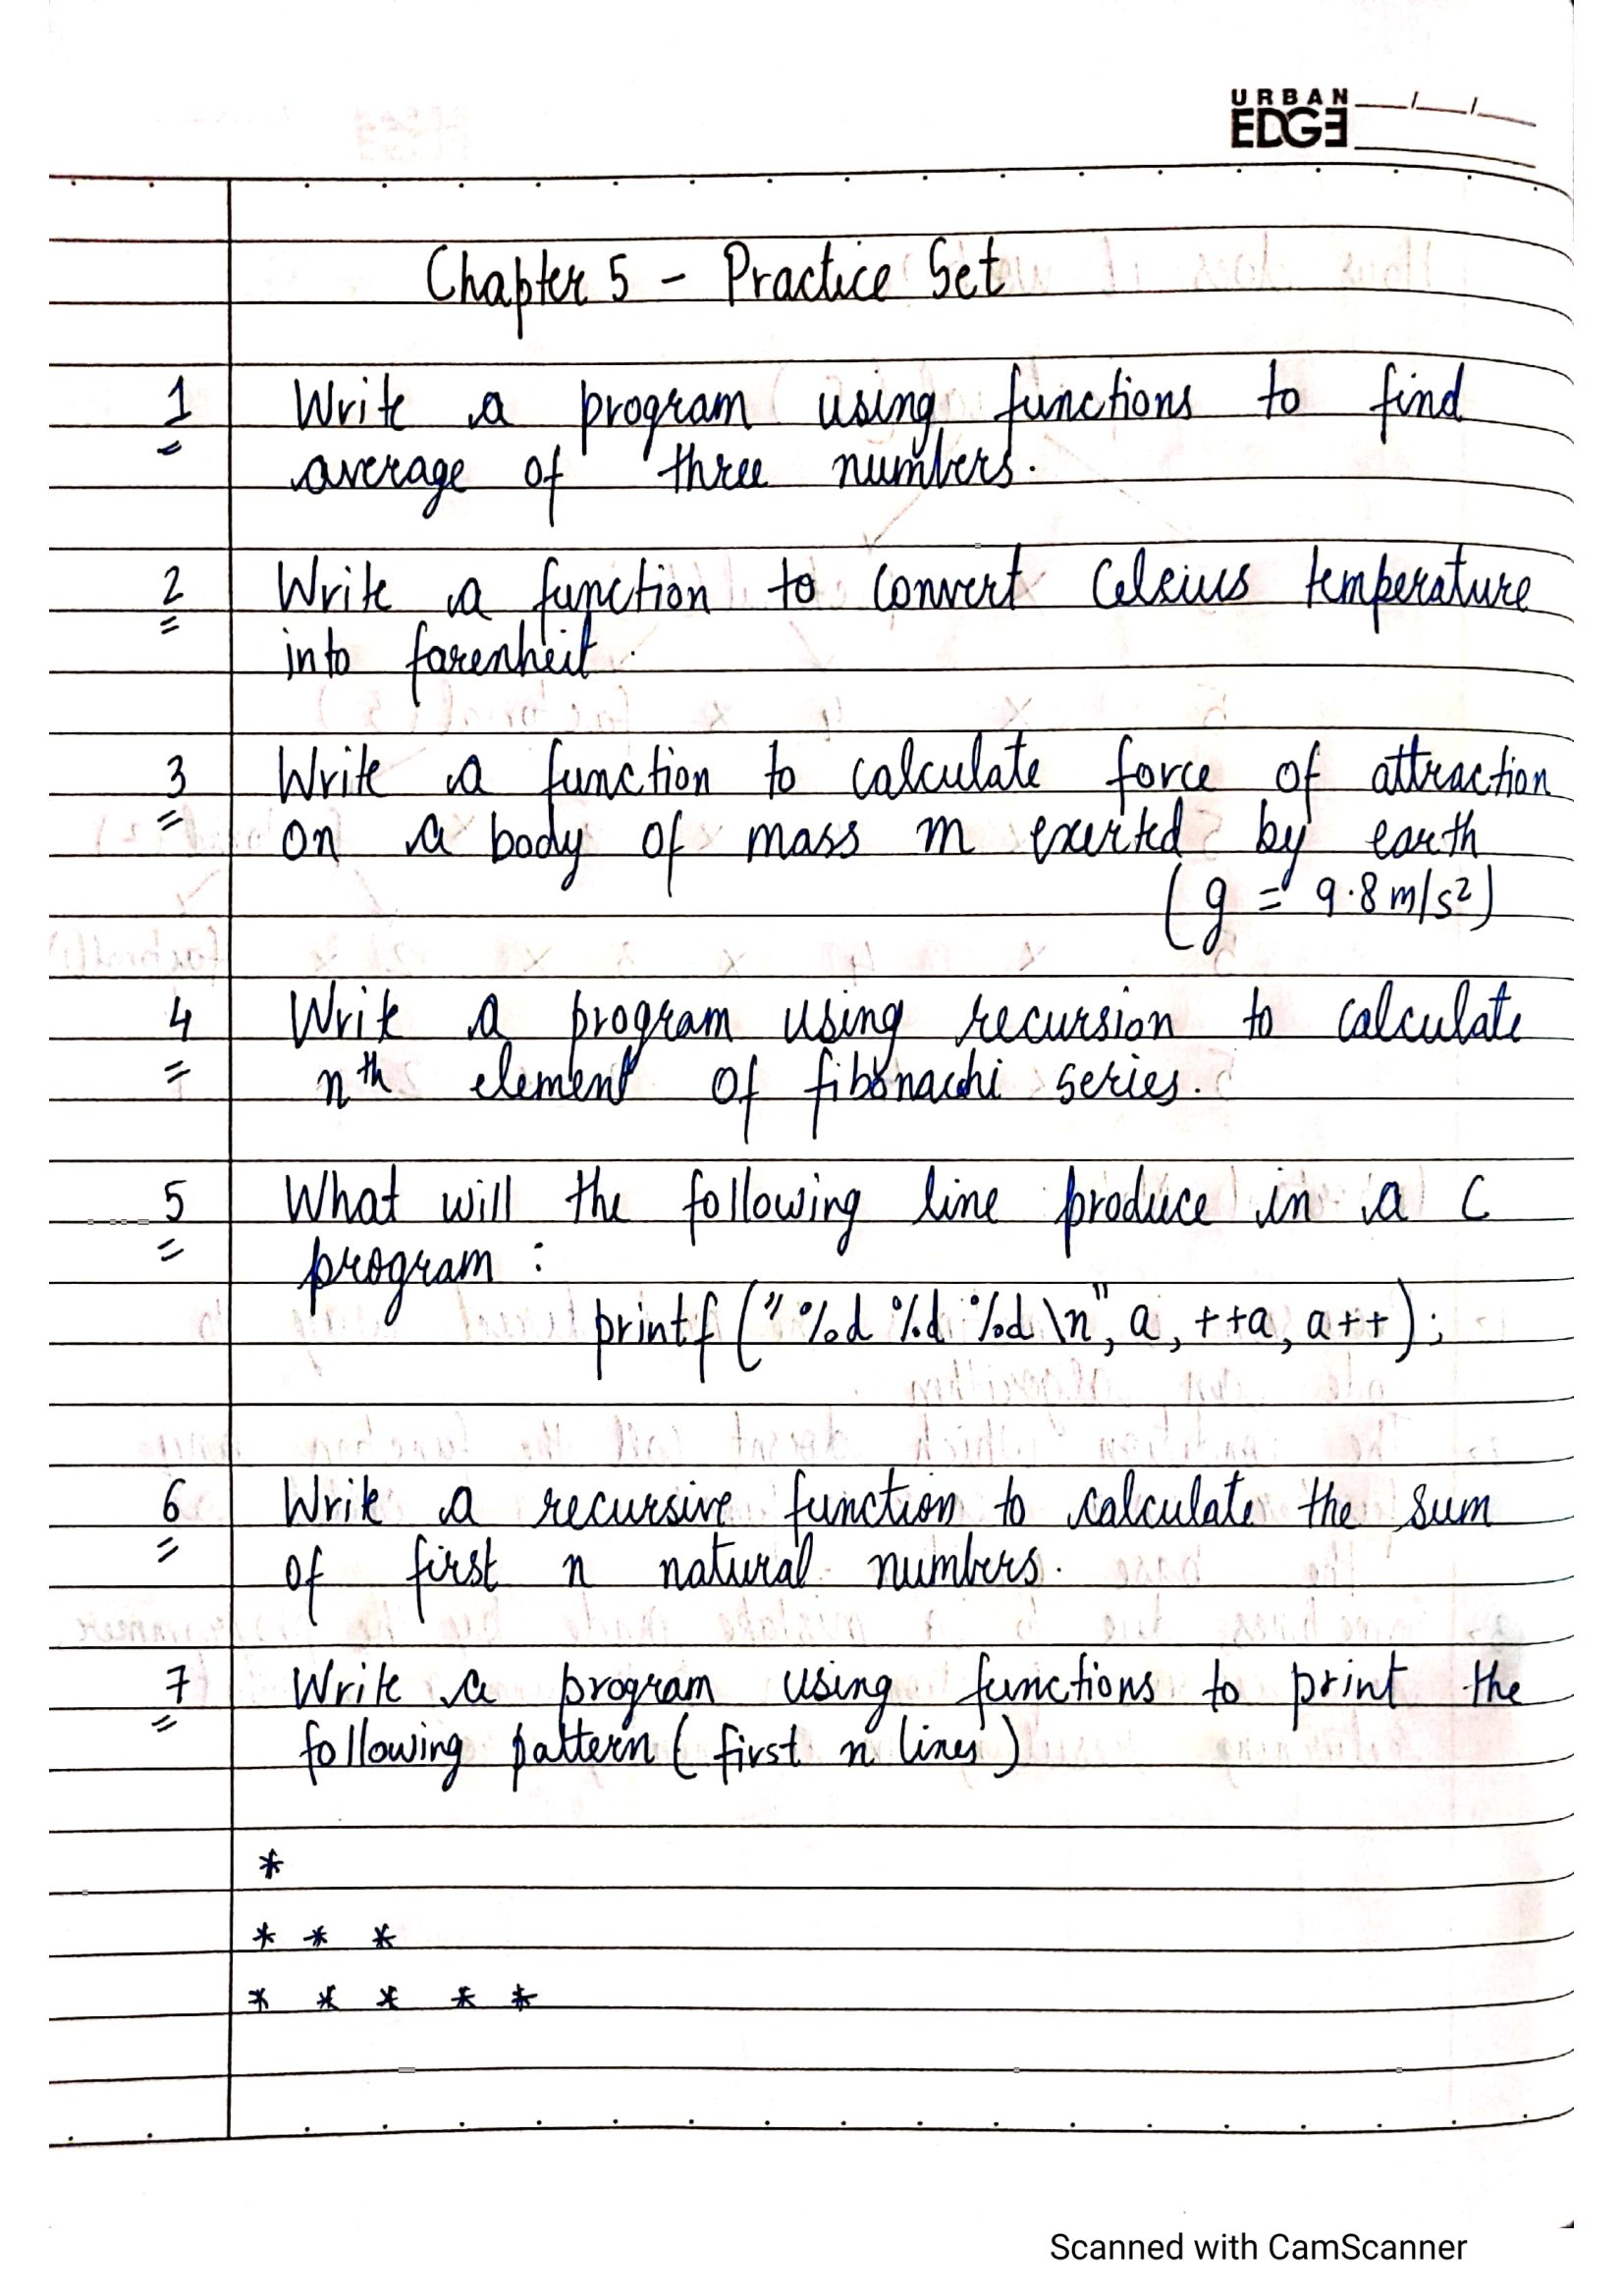 URBAN
EDGE
Chapter 5 - Practice Set
1 Write a program using functions to find
average of three numbers.
2 Write a function to convert Celsius temperature
into farenheit.
3 Write a function to calculate force of attraction
on a body of mass m exerted by earth
(g = 9.8 m/s²)
4 Write a program using recursion to calculate
nth element of fibonachi series.
5 What will the following line produce in a C
program :
printf ("%d %d %d \n", a, ++a, a++);
6 Write a recursive function to calculate the sum
of first n natural numbers.
7 Write a program using functions to print the
following pattern ( first n lines )
*
* * *
* * * * *
Scanned with CamScanner